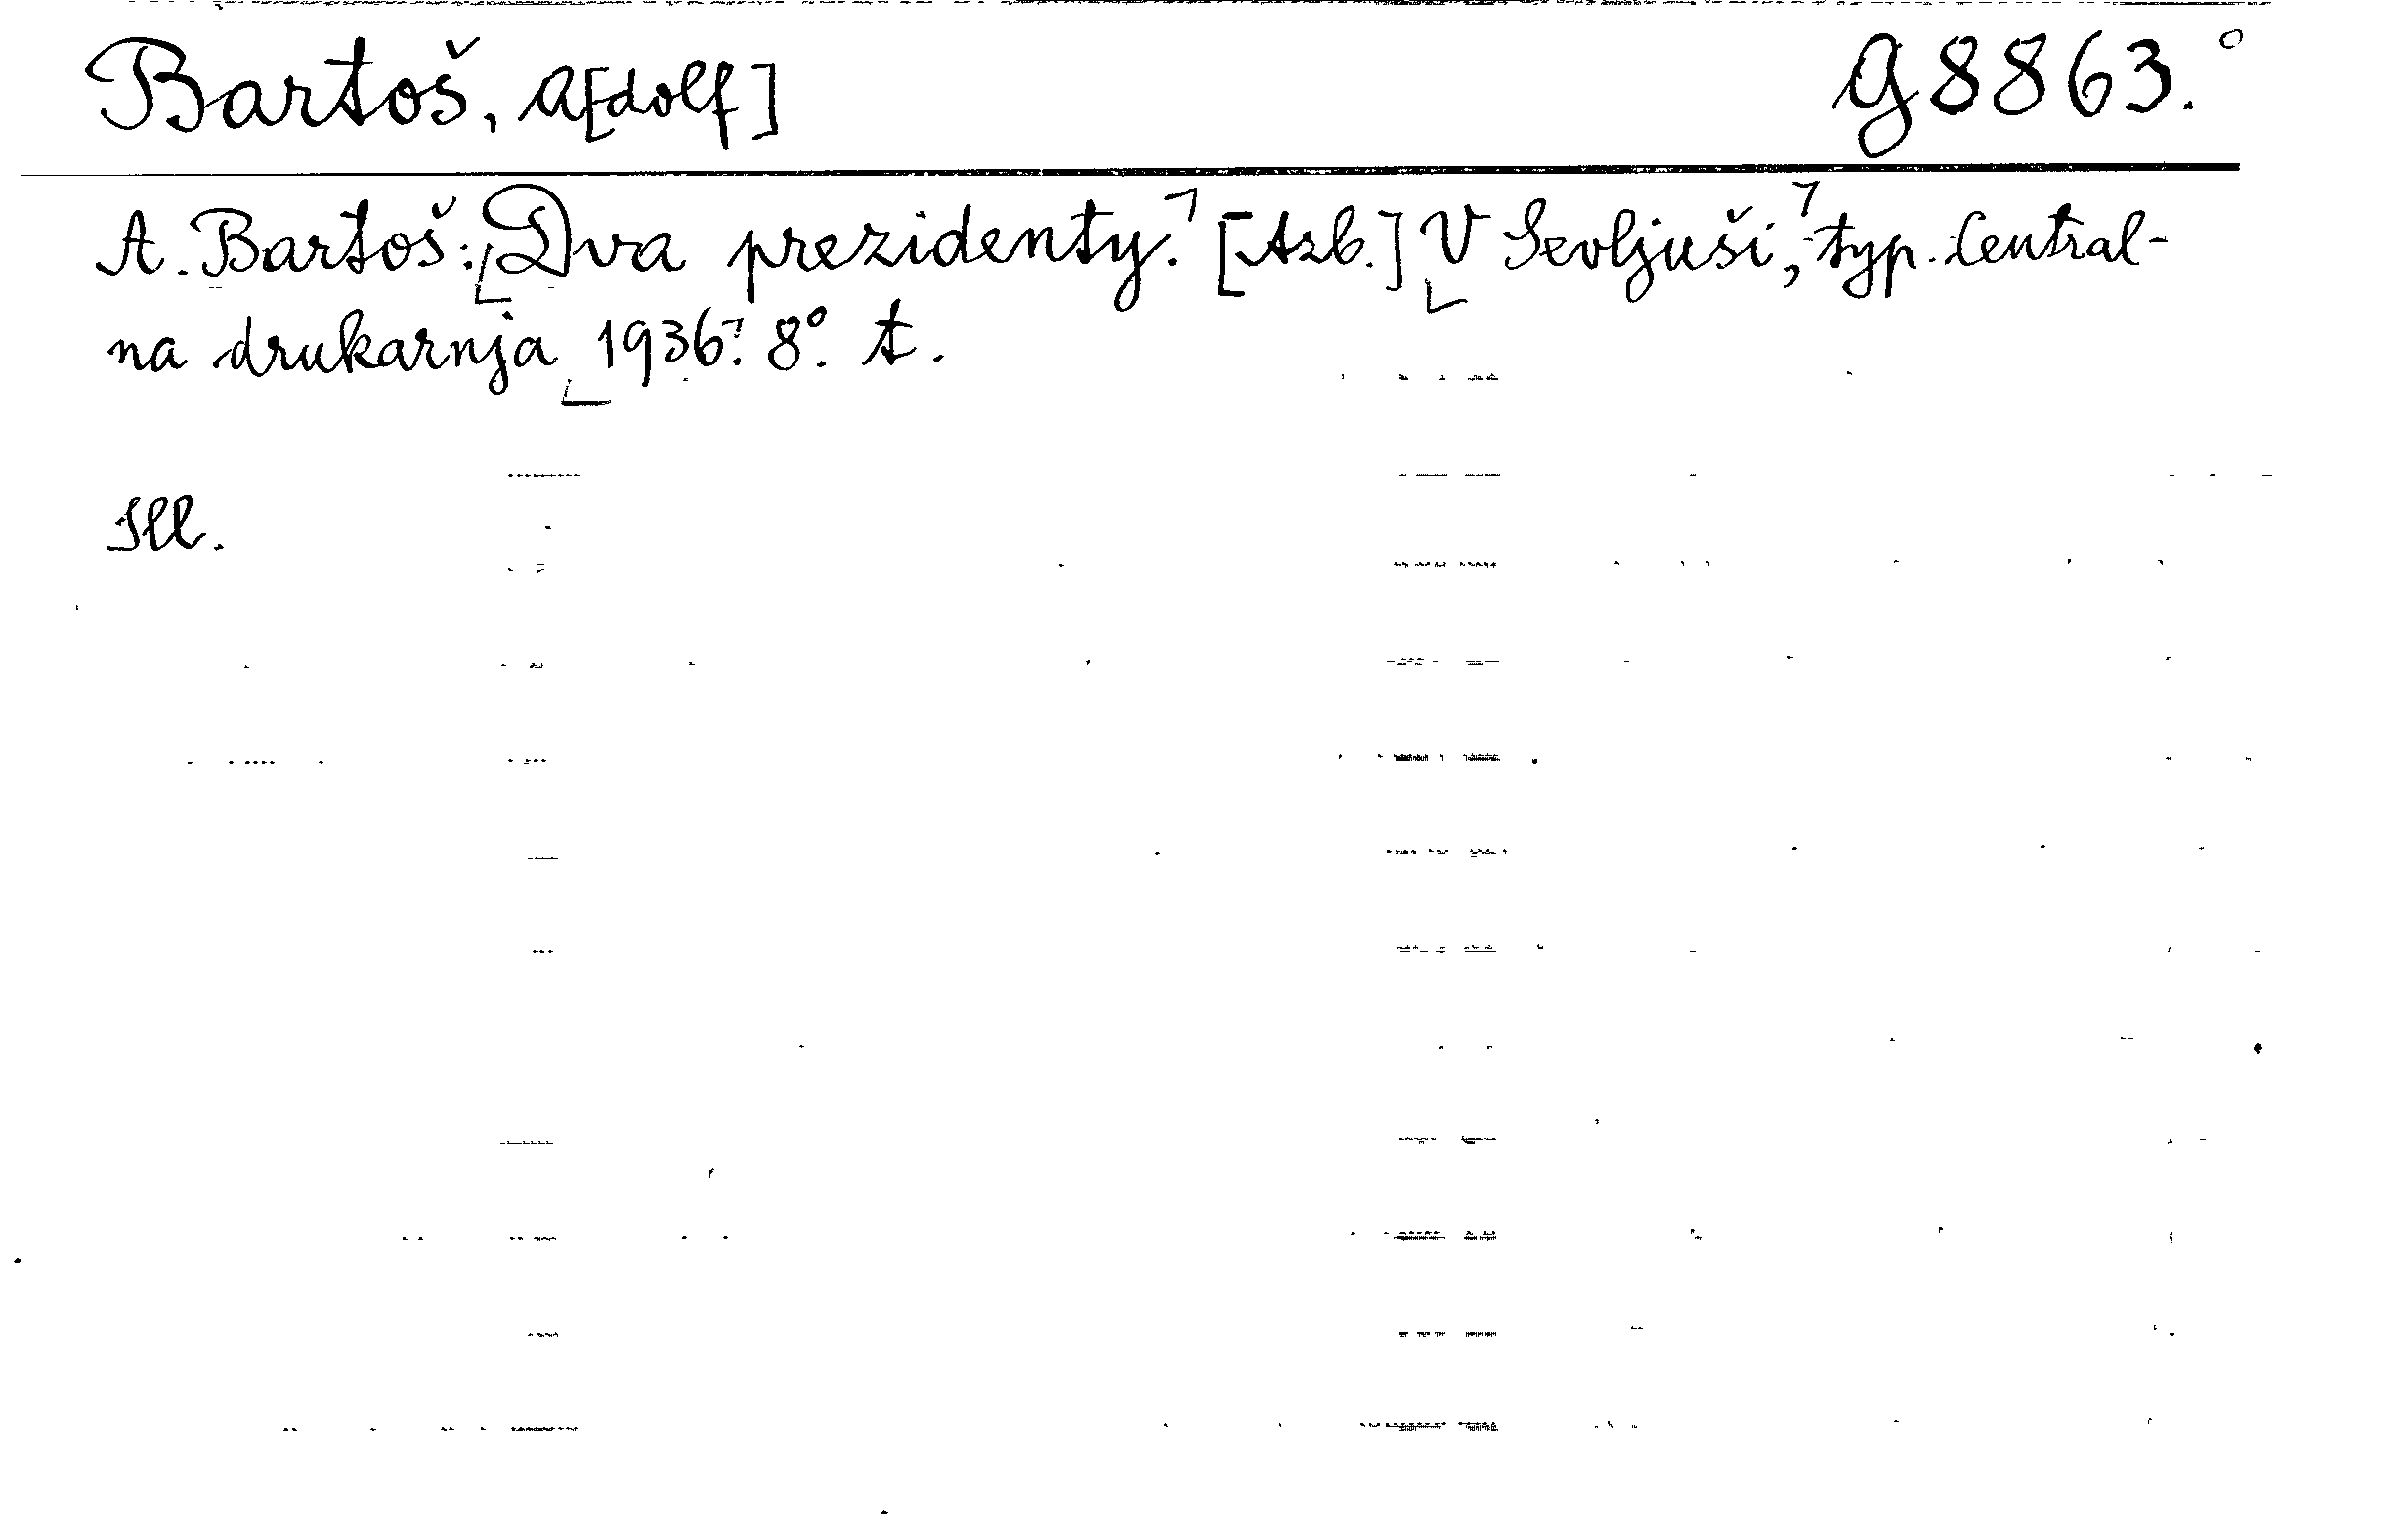 Bartoš, A[dolf] g 8863.°
A. Bartoš: Dva prezidenty. [Azb.] V Sevljuši, typ. Central-
na drukarnja 1936. 8°. t.
Ill.